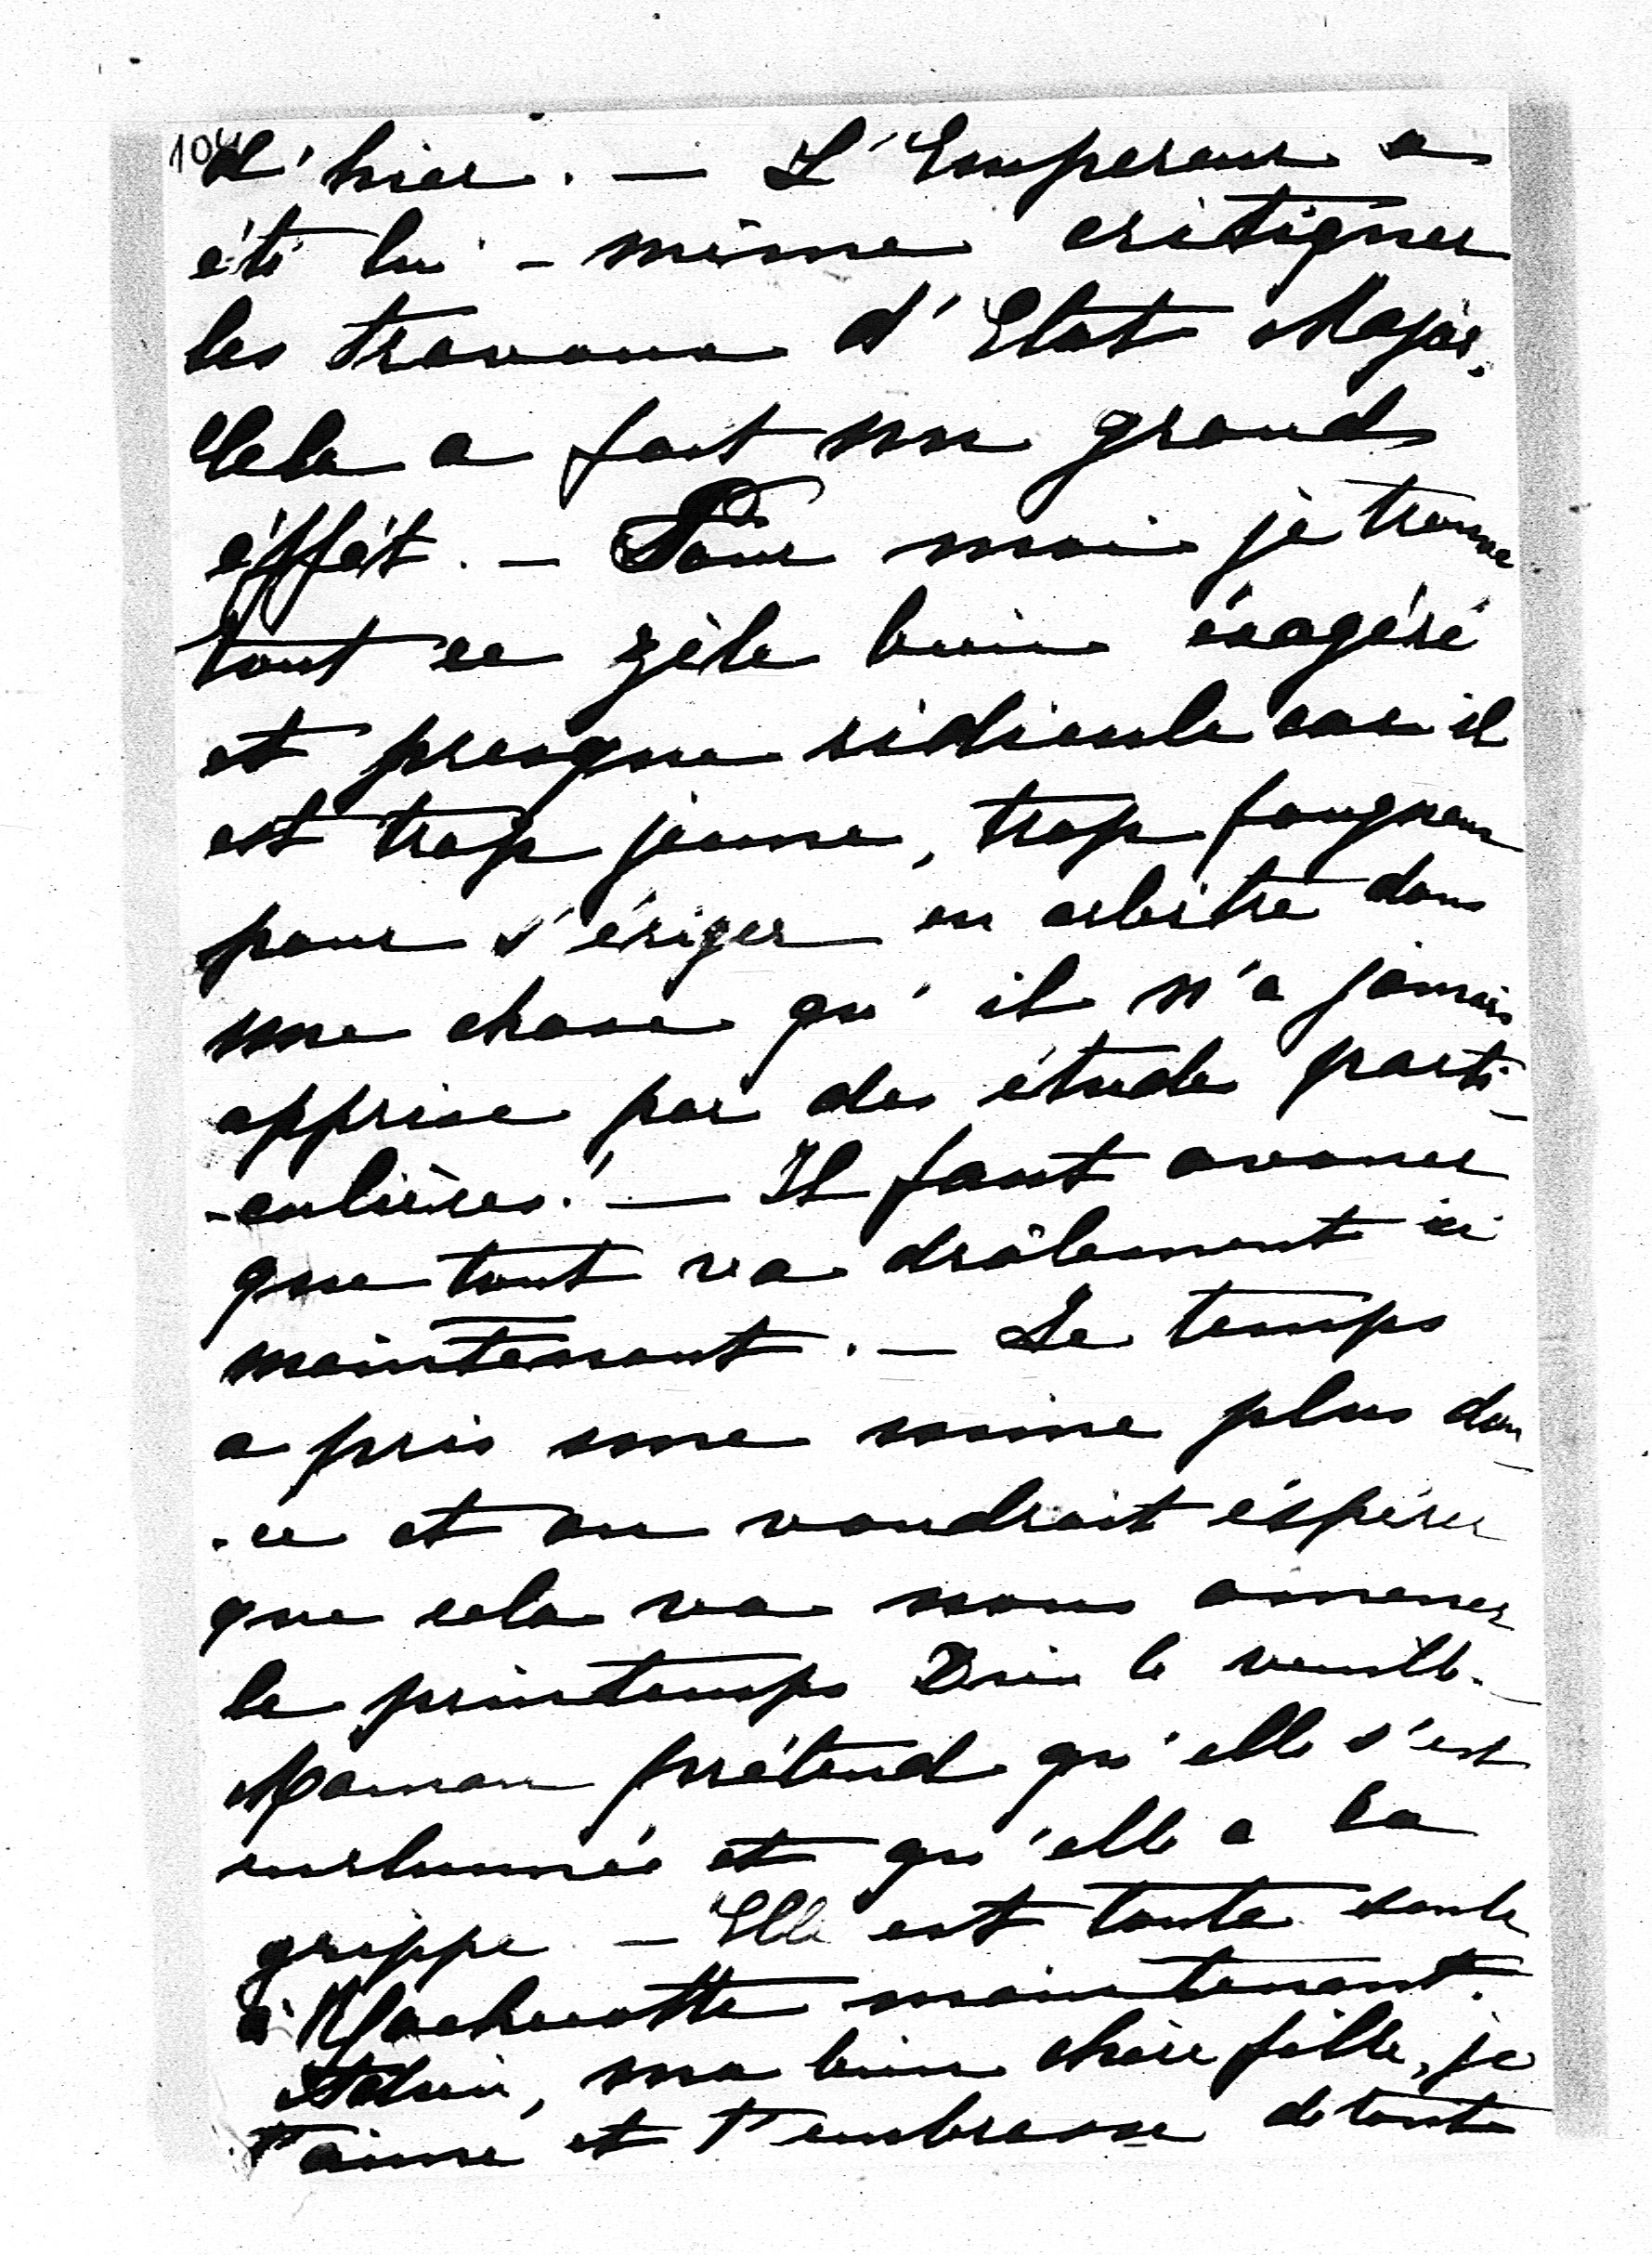 104
d'hier. — L'Empereur a
été lui - même critiquer
les travaux d'Etat Major.
Cela a fait un grand
éffét. — Pour moi je trouve
tout ce zèle bien éxagéré
et presque ridicule car il
est trop jeune, trop fougueux
pour s'ériger en arbitre dans
une chose qu'il n'a jamais
apprise par des étude parti-
-culières. — Il faut avouer
que tout va drôlement ici
maintenant. — Le temps
a pris une mine plus dou-
-ce et on voudrait éspérer
que cela va nous amener
le printemps Dieu le veuille.
Maman prétend qu'elle s'est
enrhumée et qu'elle a la
grippe — Elle est toute seule
à Rochecotte maintenant.
Adieu, ma bien chère fille, je
t'aime et t'embrasse de toute